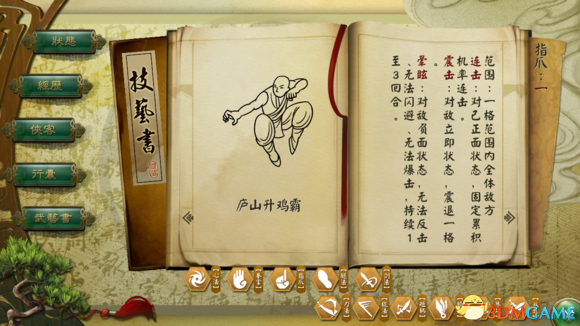 狀態
經歷
俠客
行囊
武藝書
技藝書
庐山升鸡霸
指爪：一
范围：一格范围内全体敌方
连击：对己正面状态，固定累积
机率连击。
震击：对敌立即状态，震退一格
。
晕眩：对敌负面状态，无法反击
、无法闪避、无法爆击，持续1
至3回合。
3DMGAME